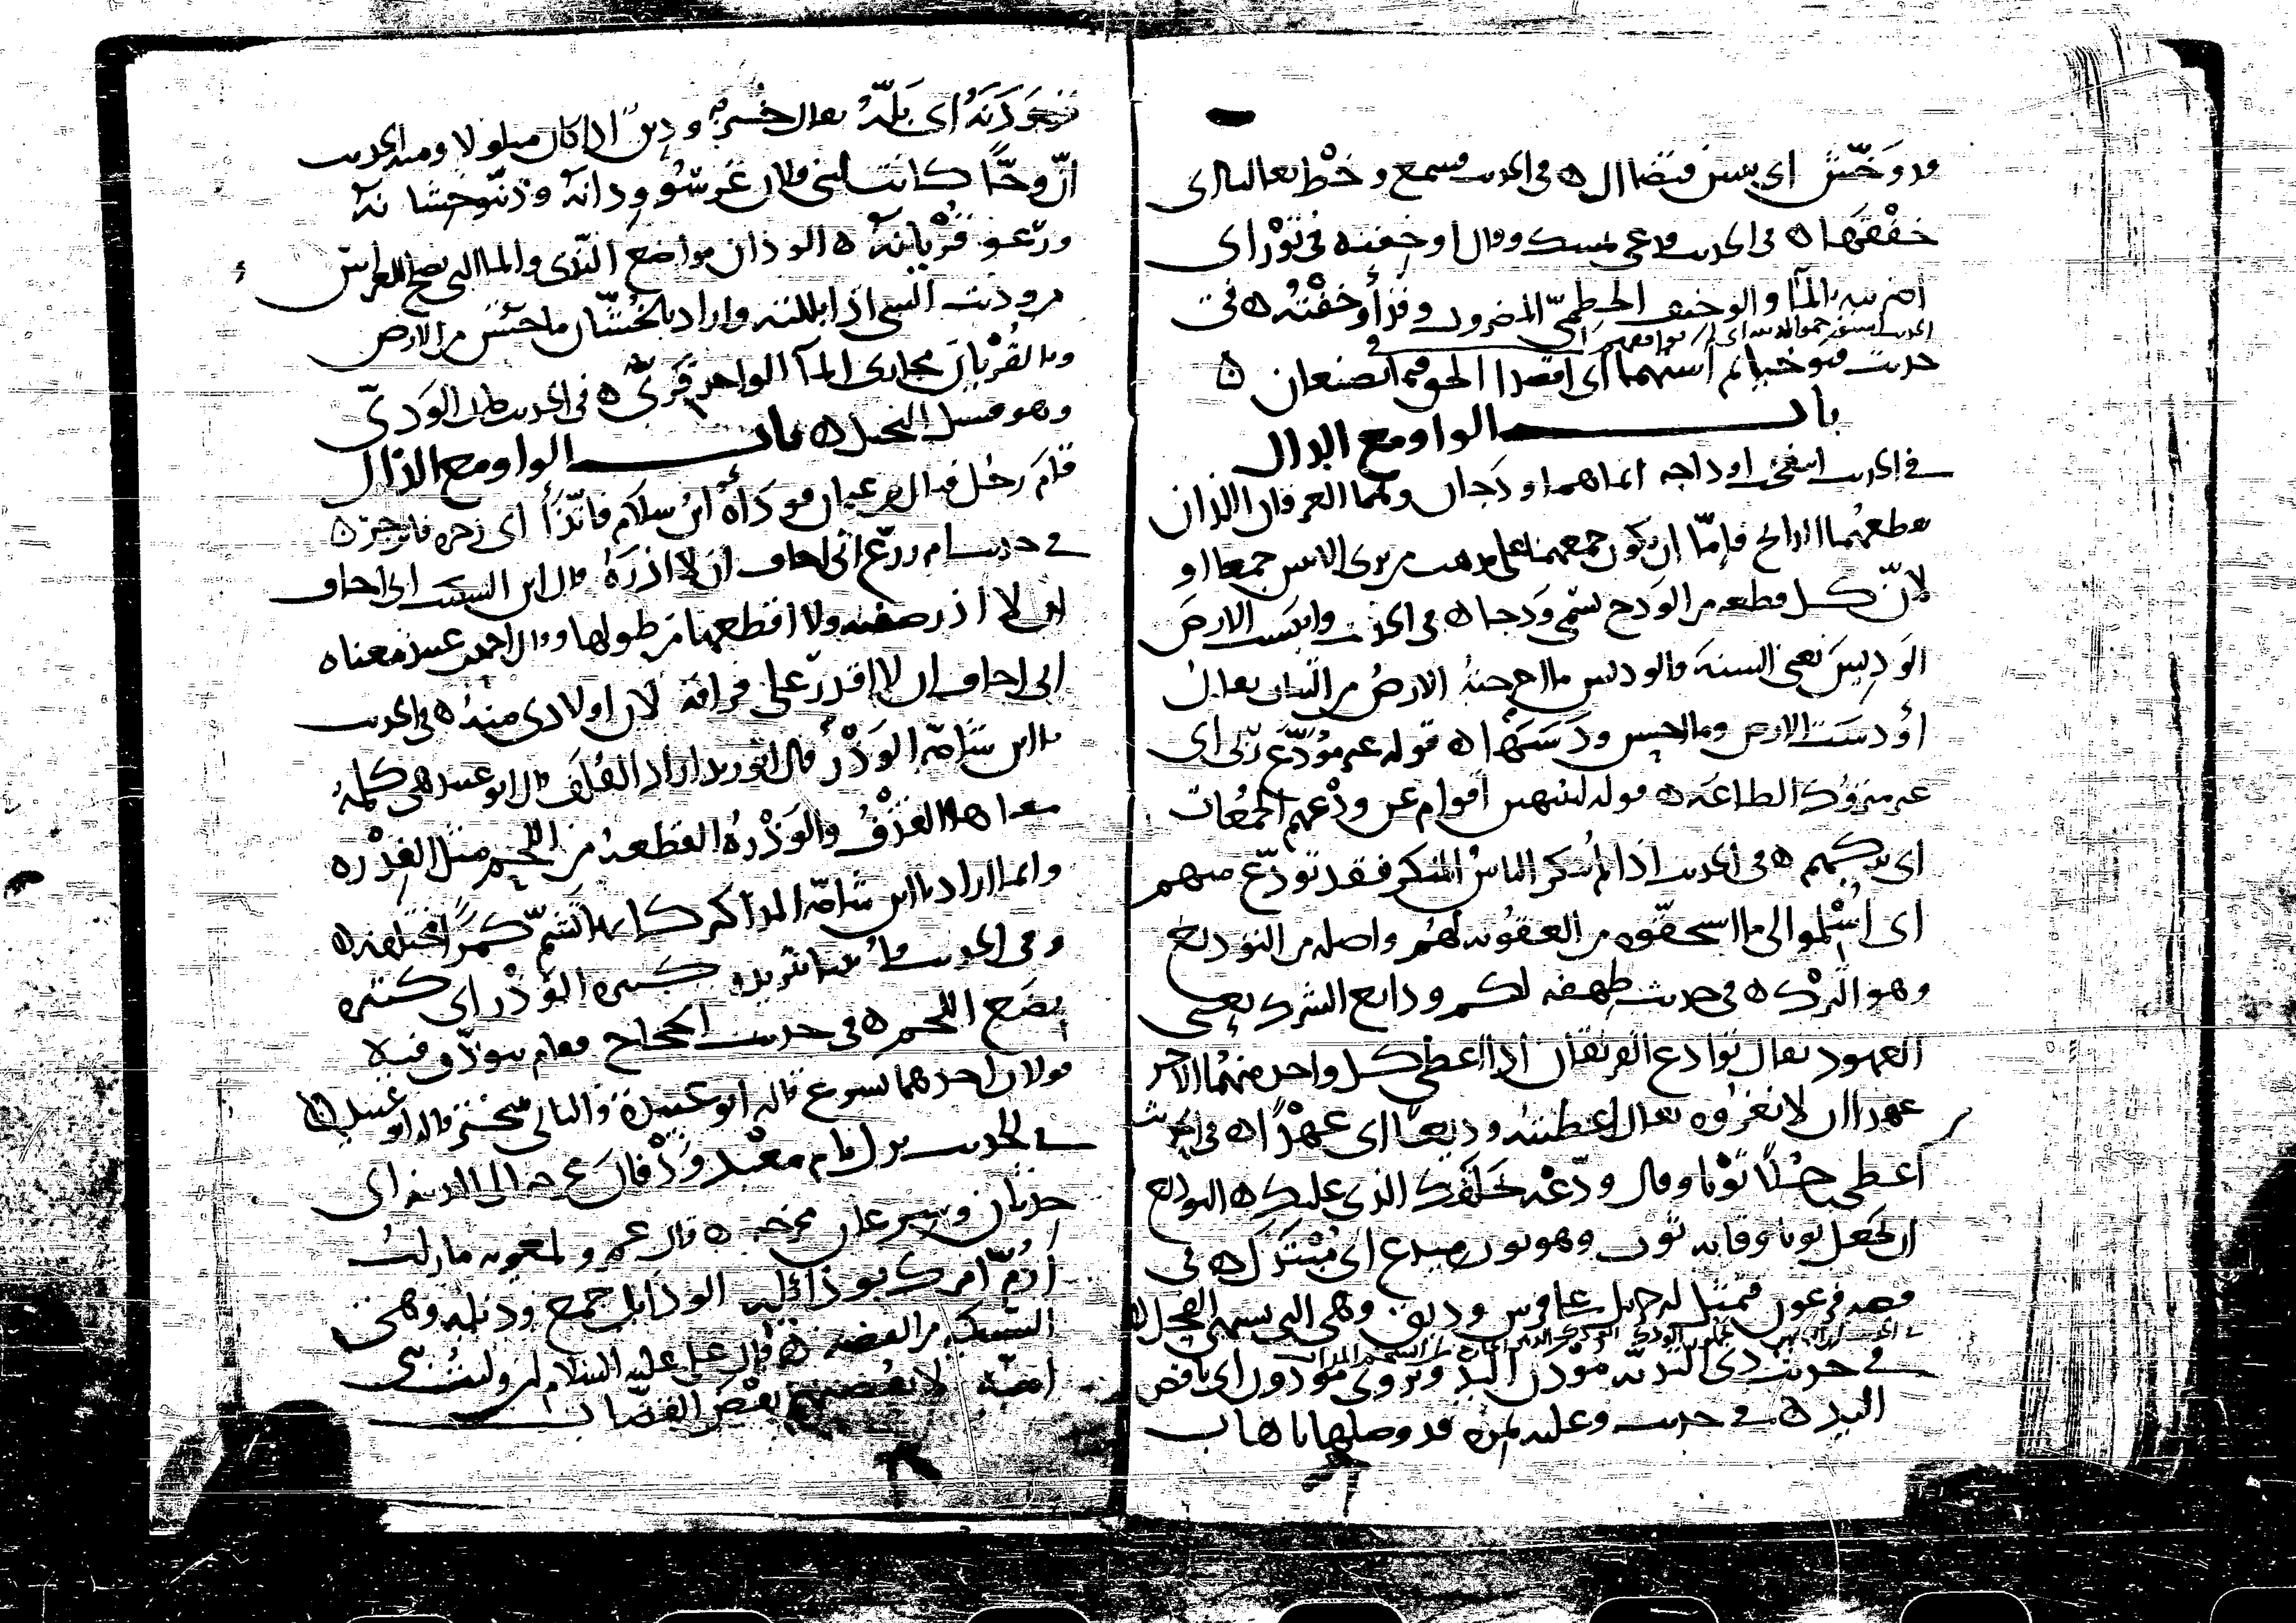 قد وخش اي يبس فتضاال ه في الحديث فسمع وخط نعالنا اي
خفقها ه في الحديث فدعى بمسك وقال اوخفيه في تور اي
اضربيه بالماء والوخيف الخطمي المضروب وقد أوخفته ه في
حديث فتوخيا ثم استهما اي اقصدا الحق فيما تصنعان ه
باب الواو مع الدال
في الحديث انتفخت اوداجه انما هما ودجان وهما العرقان اللذان
يقطعهما الذابح فإما ان يكون جمعهما على مذهب من يرى الاثنين جمعا او
لان كل قطعة من الودج تسمى ودجا ه في الحديث وايبست الارض
الوديس يعني السنة والوديس ما اخرجته الارض من النبات يقال
أودست الارض وما احسن ودسها ه قوله غير مودع ربي اي
غير متروك الطاعة ه قوله لينتهين أقوام عن ودعهم الجمعات
اي تركهم ه في الحديث اذا لم ينكر الناس المنكر فقد تودع منهم
اي أسلموا الى ما استحقوه من العقوبة لهم واصله من التوديع
وهو الترك ه في حديث طهفة لكم ودايع الشرك يعني
العهود يقال توادع الفريقان اذا اعطى كل واحد منهما الآخر
عهدا ان لا يغزوه يقال اعطيته وديعا اي عهدا ه في الحديث
اعطى رجلا ثوبا وقال ودعه بخلقك الذي عليك ه التوديع
ان تجعل ثوبا وقاية ثوب وهو ثوب ميدع اي مبتذل ه في
قصة فرعون فتمثل له جبريل على فرس وديق وهي التي تشتهي الفحل ه
في حديث ذي الثدية مودن اليد ويروى مودون اي ناقص
اليد ه في حديث وعليه نمرة قد وصلها باهاب
قد ودنه اي بله يقال خشبة ودين اذا كان مبلولا ومنه الحديث
ان وجا كانت لبني فلان غرسوا ودانه وذنبوا خشانه
ورعوا قريانه ه الودان مواضع الندى والماء التي تصلح للغراس
من ودنت الشي اذا بللته واراد بالخشان ما خشن من الارض
وبالقريان مجاري الماء الواحد قري ه في الحديث طلا الودي
وهو فسيل النخل ه باب الواو مع الذال
قام رجل فنال من عثمان فوذأه ابن سلام فاتذأ اي زجره فانزجر ه
في حديث ام زرع اني اخاف ان لا اذره قال ابن السكيت اني اخاف
ان لا اذر صفته ولا اقطعها من طولها وقال احمد بن عبيد معناه
اني اخاف ان لا اقدر على فراقه لان اولادي منه ه في الحديث
يا ابن شامة الوذر قال ابو زيد اراد القلف قال ابو عبيد هي كلمة
معناها القذف والوذرة القطعة من اللحم مثل الفدرة
وانما اراد يا ابن شامة المذاكير كانها تشم كمرا مختلفة ه
وفي الحديث فاتينا بثريدة كثيرة الوذر اي كثيرة
بضع اللحم ه في حديث الحجاج فقام يتوذف فيه
قولان احدهما يسرع قاله ابو عبيدة والثاني يتبختر قاله ابو عبيد ه
في الحديث نزل بام معبد وذفان مخرجه الى المدينة اي
حدثان وسرعان مخرجه ه قال عمرو لمعوية ما زلت
أرم امرك بوذائله الوذايل جمع وذيلة وهي
السبيكة من الفضة ه قال علي عليه السلام لئن وليت بني
امية لانفضنهم نفض القصاب